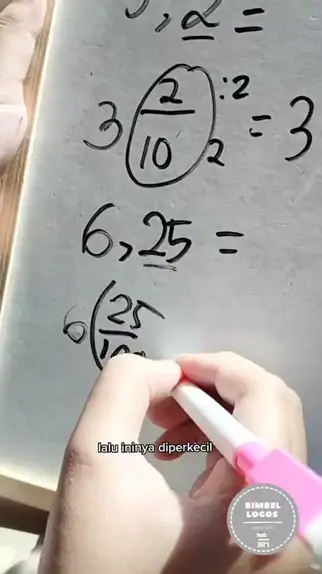 3,2 =
3 2/10 :2 2 = 3
6,25 =
6 25/100
lalu ininya diperkecil
BIMBEL
LOGOS